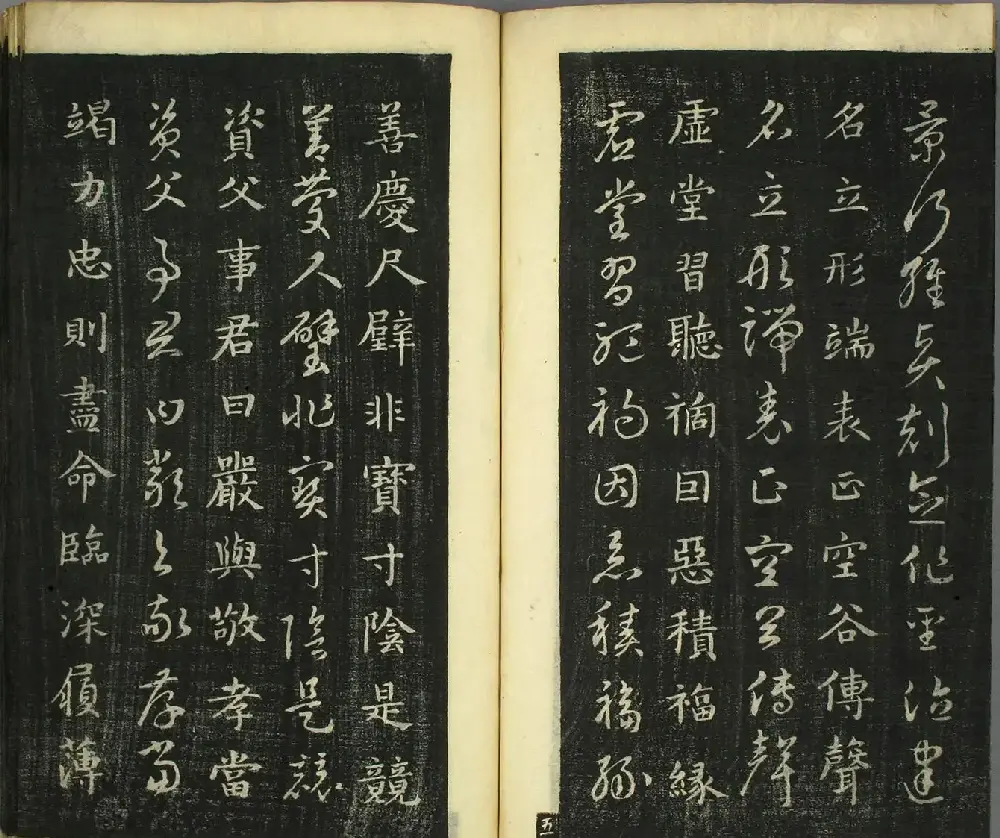 景行維賢剋念作聖德建
名立形端表正空谷傳聲
名立形端表正空谷傳聲
虛堂習聽禍因惡積福緣
虛堂習聽禍因惡積福緣
善慶尺璧非寶寸陰是競
善慶尺璧非寶寸陰是競
資父事君曰嚴與敬孝當
資父事君曰嚴與敬孝當
竭力忠則盡命臨深履薄
五